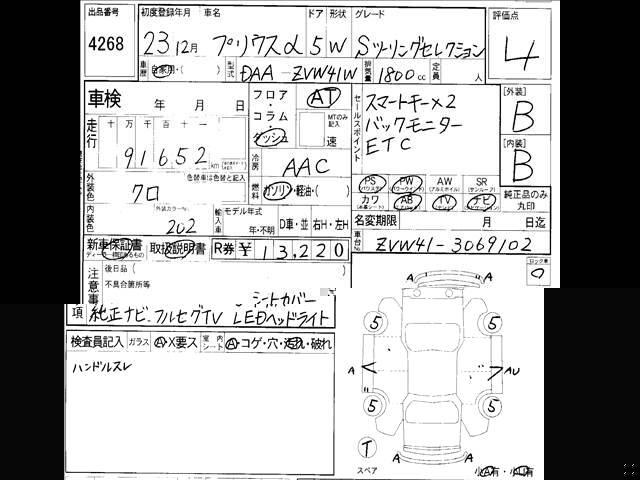 出品番号 初度登録年月 車名 ドア 形状 グレード 評価点
4268 23 12月 プリウスα 5 W Sツーリングセレクション 4
車歴 自家用・( ) 型式 DAA-ZVW41W 排気量 1800cc 定員 人
車検 年 月 日
フロア・コラム・ダッシュ AT MTのみ記入 速
セールスポイント スマートキー×2
バックモニター
ETC
[外装] B
[内装] B
走行 十 万 千 百 十 一
91652 km
冷房 AAC
外装色 クロ 色替車は色替と記入
燃料 ガソリン・軽油・( )
PS PW AW SR
(パワステ) (パワーウィンド) (アルミホイル) (サンルーフ)
カワ AB TV ナビ
(本革シート) (エアバッグ)
純正品のみ丸印
内装色 [外装カラーNo.] 202
輸入車 モデル年式 年・不明 D車・並 右H・左H
名変期限 月 日迄
新車保証書 取扱説明書 R券 ¥ 13,220
車台No. ZVW41-3069102
注意事項 後日品( )
不具合箇所等
シートカバー
純正ナビ フルセグTV LEDヘッドライト
検査員記入 ガラス A・X要ス 室内シート A・コゲ・穴・汚れ・破れ
ハンドルスレ
ロック番
0
A A
5 5
A AU
5 5
T
スペア
A A
小A有・小U有